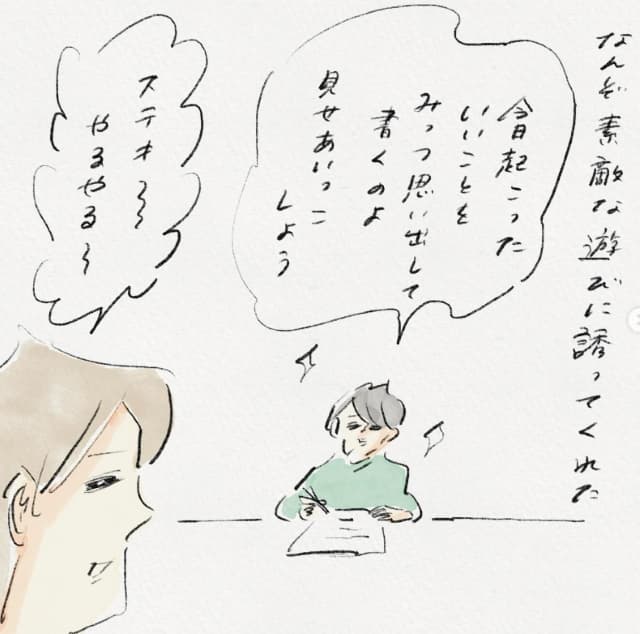 なんぞ素敵な遊びに誘ってくれた
今日起こった
いいことを
みっつ思い出して
書くのよ
見せあいっこ
しよう
ステキ〜
やるやる〜